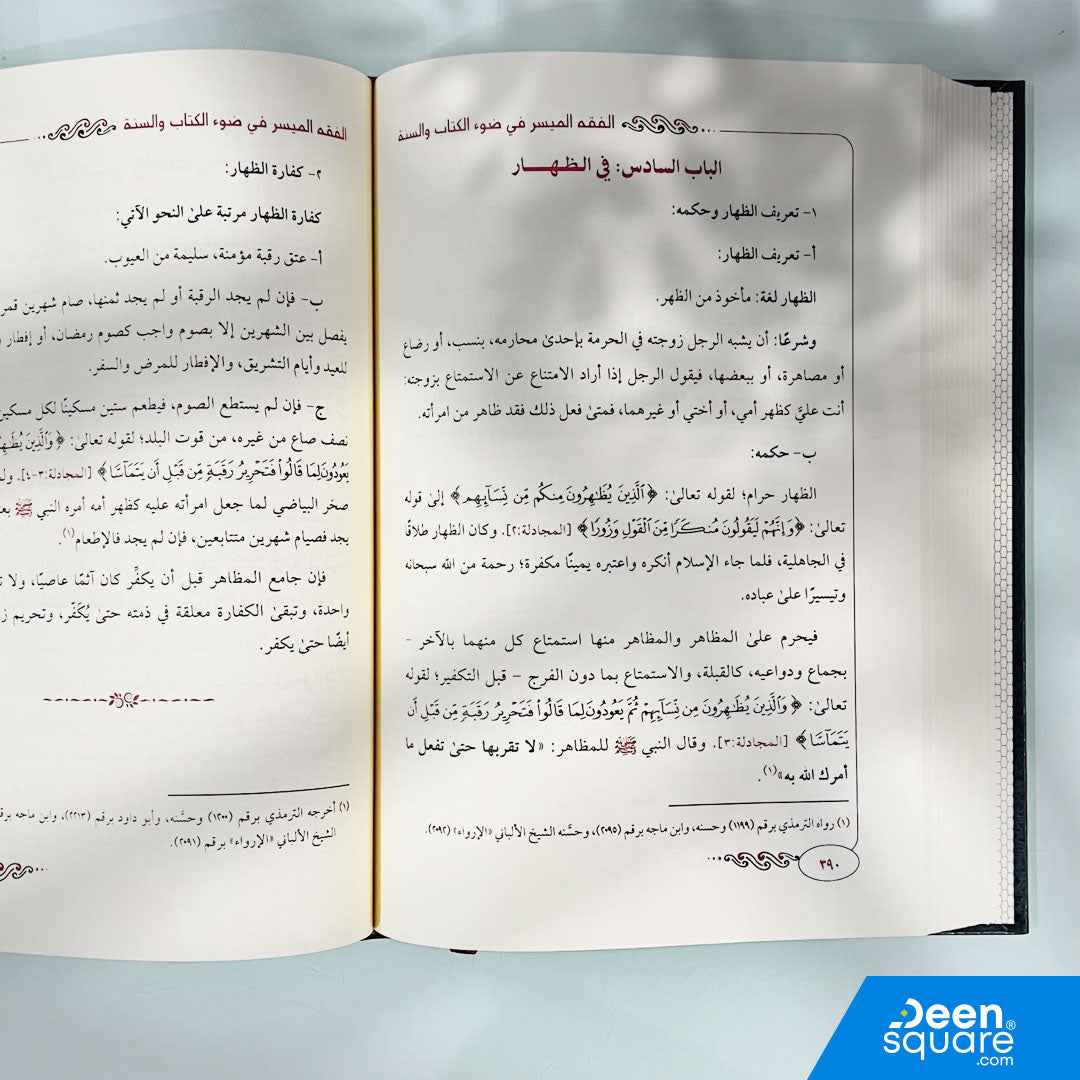 الفقه الميسر في ضوء الكتاب والسنة
الباب السادس: في الظهار
١- تعريف الظهار وحكمه:
أ- تعريف الظهار:
الظهار لغة: مأخوذ من الظهر.
وشرعًا: أن يشبه الرجل زوجته في الحرمة بإحدىٰ محارمه، بنسب، أو رضاع
أو مصاهرة، أو ببعضها، فيقول الرجل إذا أراد الامتناع عن الاستمتاع بزوجته:
أنت عليَّ كظهر أمي، أو أختي أو غيرهما، فمتىٰ فعل ذلك فقد ظاهر من امرأته.
ب- حكمه:
الظهار حرام؛ لقوله تعالىٰ: ﴿ٱلَّذِينَ يُظَٰهِرُونَ مِنكُم مِّن نِّسَآئِهِم﴾ إلىٰ قوله
تعالىٰ: ﴿وَإِنَّهُمْ لَيَقُولُونَ مُنكَرًا مِّنَ ٱلْقَوْلِ وَزُورًا﴾ [المجادلة:٢]. وكان الظهار طلاقًا
في الجاهلية، فلما جاء الإسلام أنكره واعتبره يمينًا مكفرة؛ رحمة من الله سبحانه
وتيسيرًا علىٰ عباده.
فيحرم علىٰ المظاهر والمظاهر منها استمتاع كل منهما بالآخر -
بجماع ودواعيه، كالقبلة، والاستمتاع بما دون الفرج - قبل التكفير؛ لقوله
تعالىٰ: ﴿وَٱلَّذِينَ يُظَٰهِرُونَ مِن نِّسَآئِهِمْ ثُمَّ يَعُودُونَ لِمَا قَالُوا۟ فَتَحْرِيرُ رَقَبَةٍ مِّن قَبْلِ أَن
يَتَمَآسَّا﴾ [المجادلة:٣]. وقال النبي ﷺ للمظاهر: «لا تقربها حتىٰ تفعل ما
أمرك الله به»(١).
(١) رواه الترمذي برقم (١١٩٩) وحسنه، وابن ماجه برقم (٢٠٩٥)، وحسَّنه الشيخ الألباني «الإرواء» (٢٠٩٢).
٣٩٠
الفقه الميسر في ضوء الكتاب والسنة
٢- كفارة الظهار:
كفارة الظهار مرتبة علىٰ النحو الآتي:
أ- عتق رقبة مؤمنة، سليمة من العيوب.
ب- فإن لم يجد الرقبة أو لم يجد ثمنها، صام شهرين
يفصل بين الشهرين إلا بصوم واجب كصوم رمضان، أو إفطار
للعيد وأيام التشريق، والإفطار للمرض والسفر.
ج- فإن لم يستطع الصوم، فيطعم ستين مسكينًا لكل مسكين
نصف صاع من غيره، من قوت البلد؛ لقوله تعالىٰ: ﴿وَٱلَّذِينَ
يَعُودُونَ لِمَا قَالُوا۟ فَتَحْرِيرُ رَقَبَةٍ مِّن قَبْلِ أَن يَتَمَآسَّا﴾ [المجادلة:٣-٤].
صخر البياضي لما جعل امرأته عليه كظهر أمه أمره النبي ﷺ
يجد فصيام شهرين متتابعين، فإن لم يجد فالإطعام(١).
فإن جامع المظاهر قبل أن يكفِّر كان آثمًا عاصيًا، ولا
واحدة، وتبقىٰ الكفارة معلقة في ذمته حتىٰ يُكَفّر، وتحريم
أيضًا حتىٰ يكفر.
(١) أخرجه الترمذي برقم (١٢٠٠) وحسَّنه، وأبو داود برقم (٢٢١٣)، وابن ماجه
الشيخ الألباني «الإرواء» برقم (٢٠٩١).
Deen®
square
.com